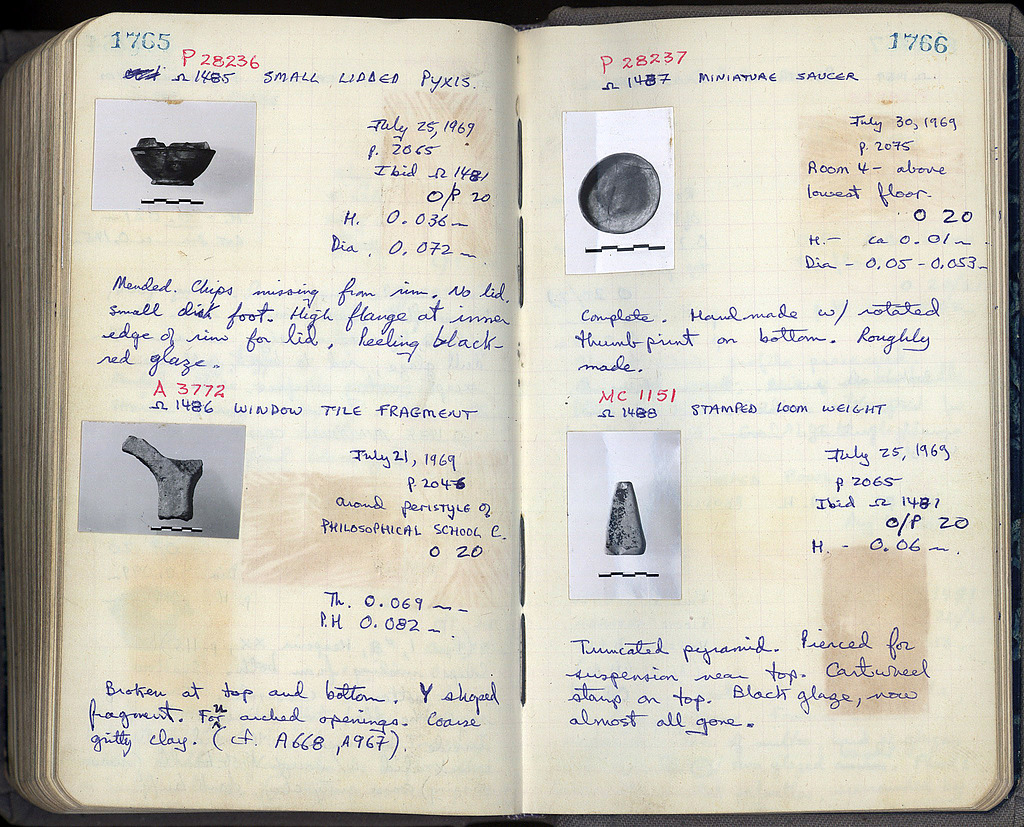 1765
P 28236
Ω 1485 SMALL LIDDED PYXIS.
July 25, 1969
p. 2065
Ibid Ω 1481
O/P 20
H. 0.036 m
Dia. 0.072 m
Mended. Chips missing from rim. No lid.
Small disk foot. High flange at inner
edge of rim for lid. Peeling black-
red glaze.
A 3772
Ω 1486 WINDOW TILE FRAGMENT
July 21, 1969
p. 2046
around peristyle of
PHILOSOPHICAL SCHOOL C.
O 20
Th. 0.069 m
P.H 0.082 m.
Broken at top and bottom. Y shaped
fragment. arched openings. Coarse
gritty clay. (cf. A668, A967).
1766
P 28237
Ω 1487 MINIATURE SAUCER
July 30, 1969
p. 2075
Room 4 - above
lowest floor.
O 20
H. - ca 0.01 m.
Dia - 0.05 - 0.053 m
Complete. Handmade w/ rotated
thumb print on bottom. Roughly
made.
MC 1151
Ω 1488 STAMPED LOOM WEIGHT
July 25, 1969
p 2065
Ibid Ω 1481
O/P 20
H. - 0.06 m.
Truncated pyramid. Pierced for
suspension near top. Cartwheel
stamp on top. Black glaze, now
almost all gone.